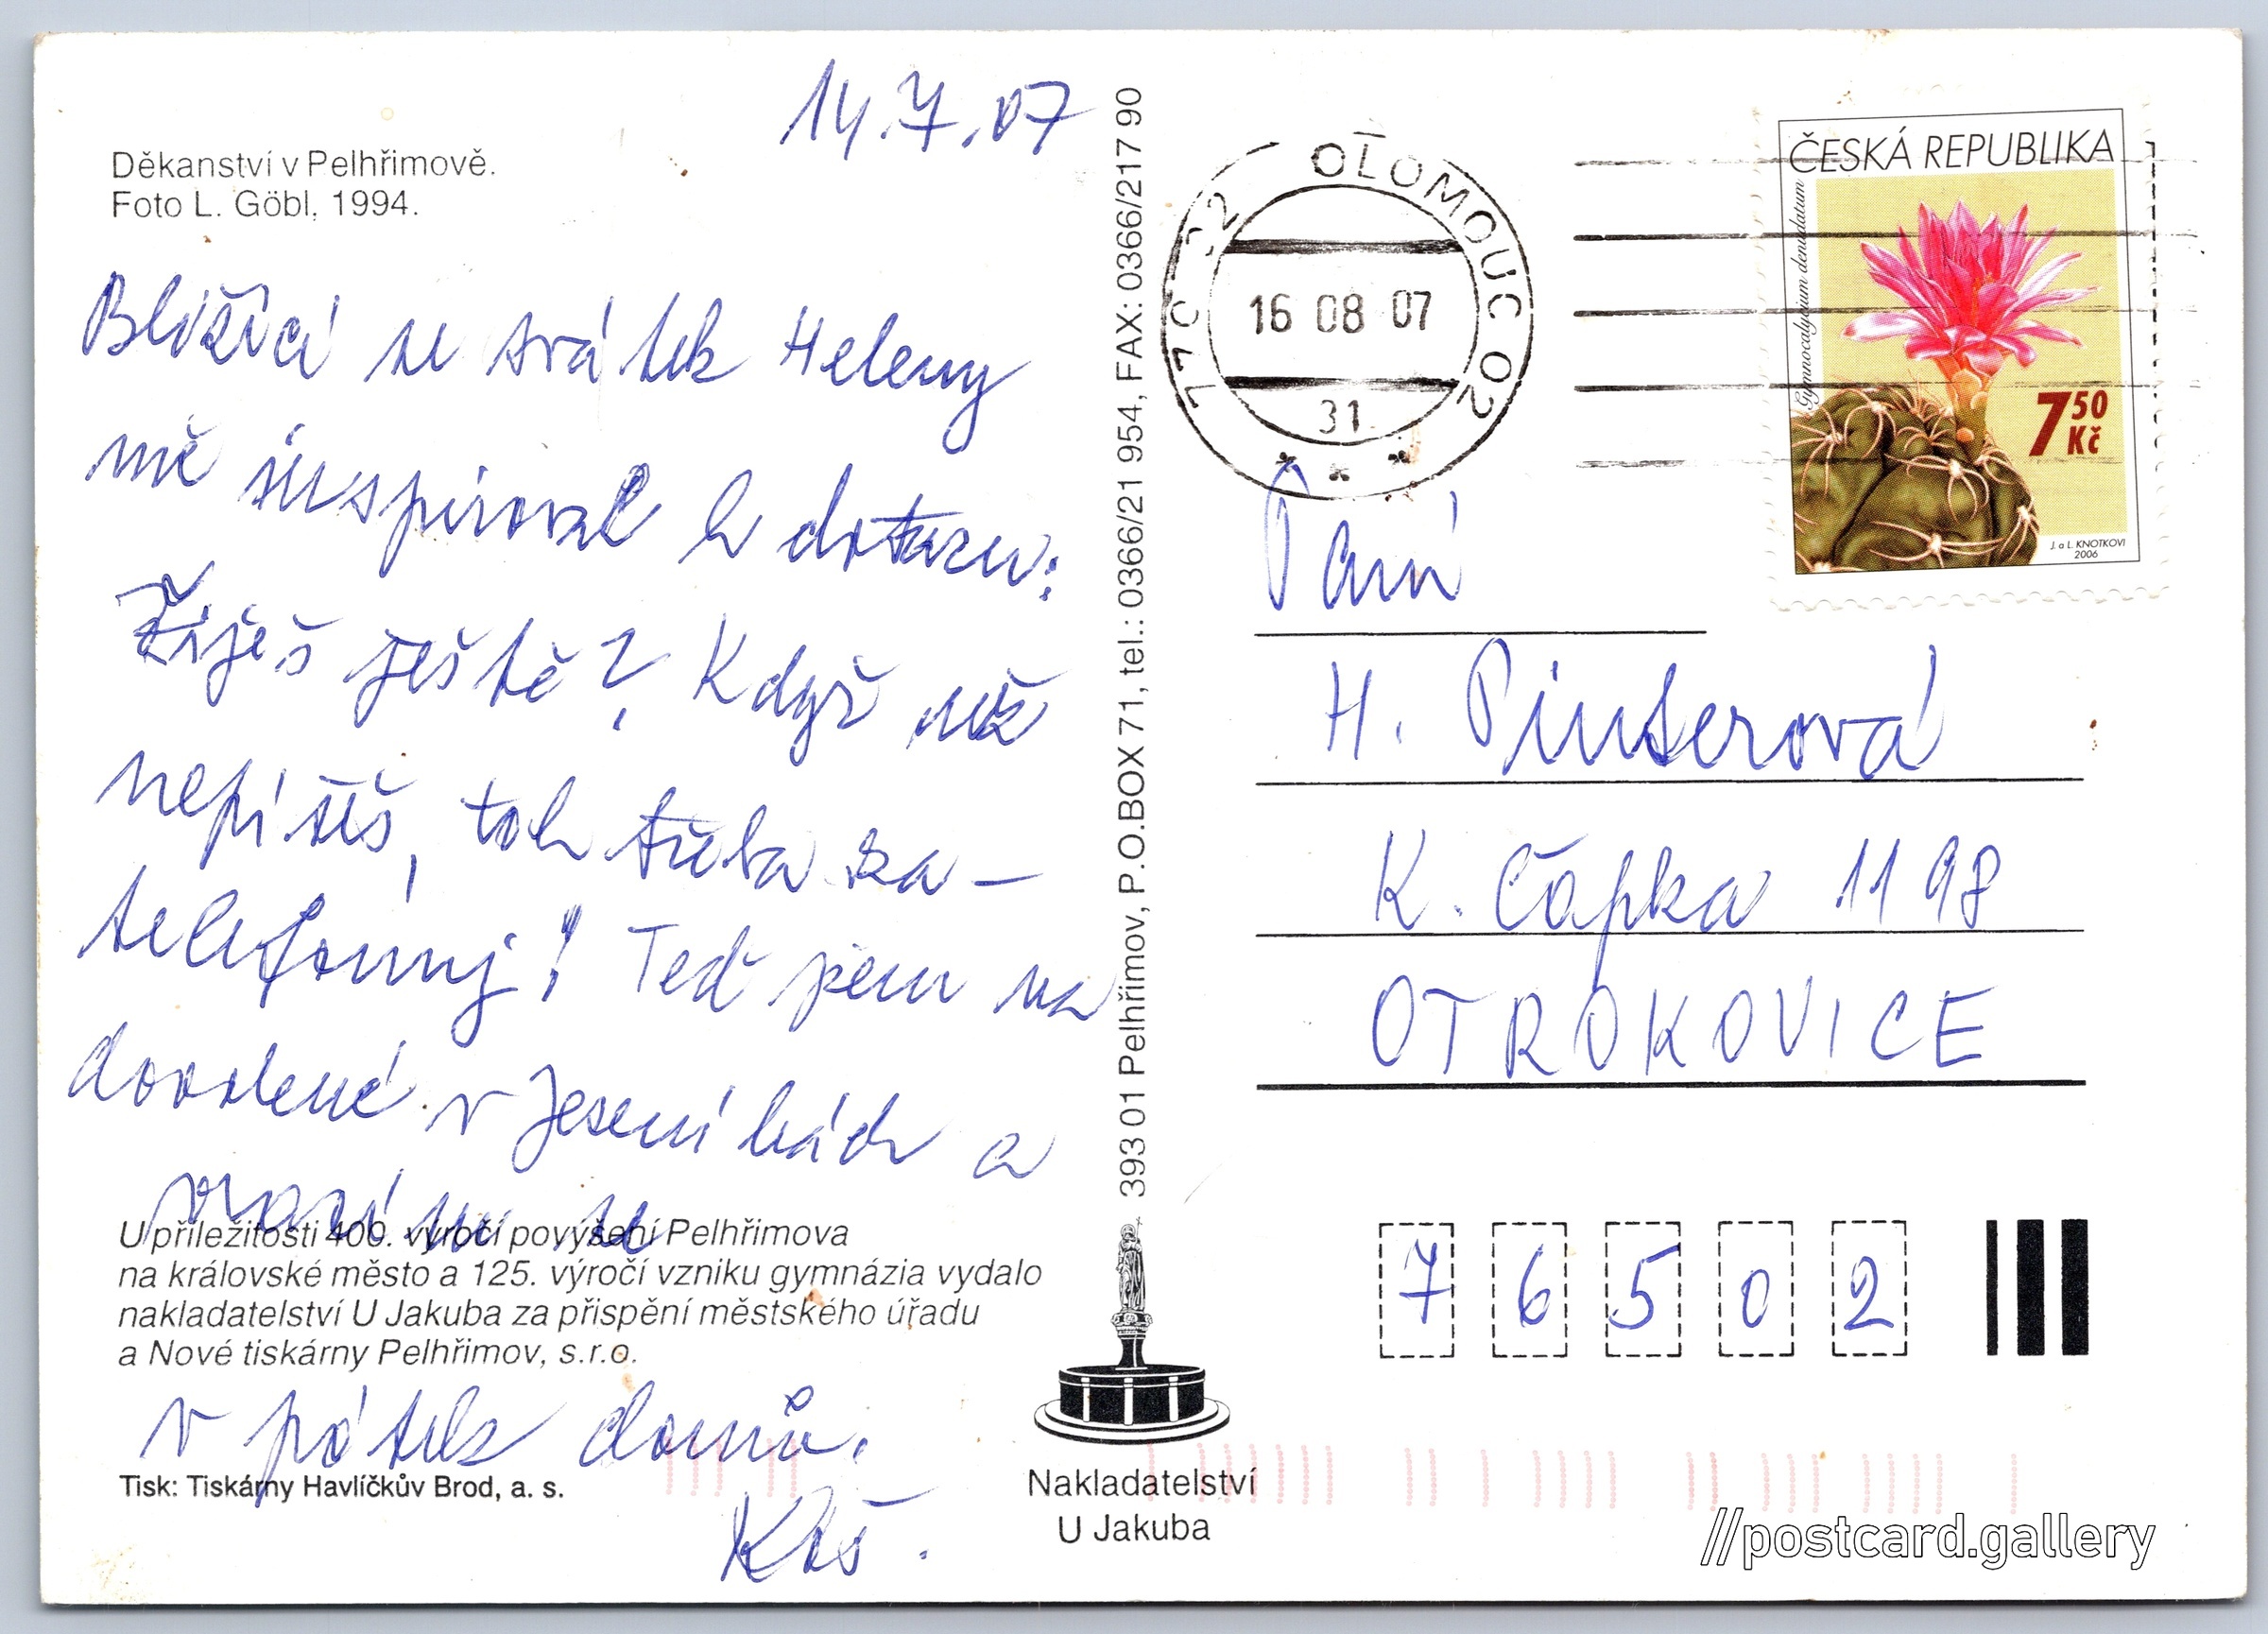 14.7.07
Děkanství v Pelhřimově.
Foto L. Göbl, 1994.
Blížící se svátek Heleny
mě inspiroval k dotazu:
Žiješ ještě? Když už
nepíšíš, tak třeba za-
telefonuj! Teď jsem na
dovolené v Jeseníkách a
vracím se
U příležitosti 400. výročí povýšení Pelhřimova
na královské město a 125. výročí vzniku gymnázia vydalo
nakladatelství U Jakuba za přispění městského úřadu
a Nové tiskárny Pelhřimov, s.r.o.
v pátek domů.
Tisk: Tiskárny Havlíčkův Brod, a. s.
393 01 Pelhřimov, P.O.BOX 71, tel.: 0366/21 954, FAX: 0366/217 90
Nakladatelství
U Jakuba
OLOMOUC 02
16 08 07
31
ČESKÁ REPUBLIKA
Gymnocalycium denudatum
7 50
Kč
J. a L. KNOTKOVI
2006
Paní
H. Pinterová
K. Čapka 1198
OTROKOVICE
7 6 5 0 2
//postcard.gallery